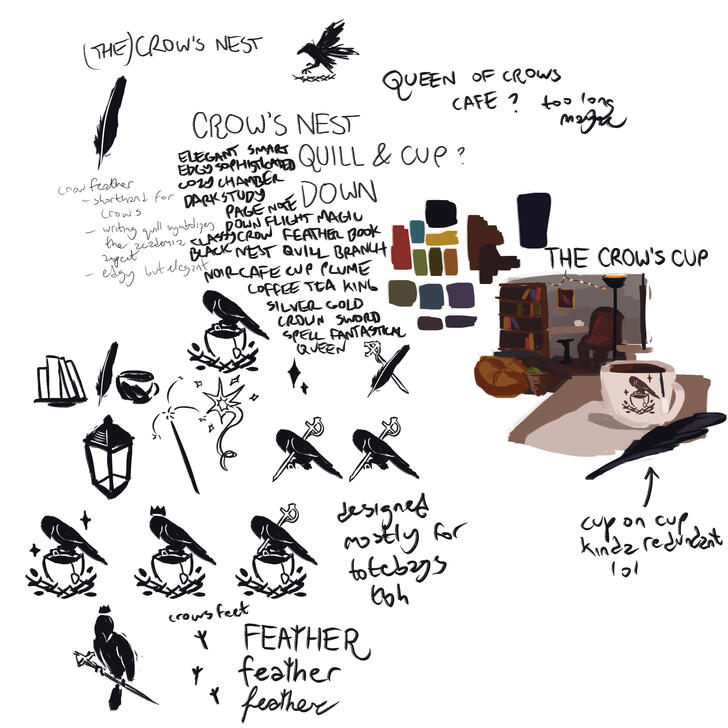 (THE) CROW'S NEST
QUEEN OF CROWS
CAFE? too long
CROW'S NEST
QUILL & CUP?
DOWN
ELEGANT SMART
EDGY SOPHISTICATED
COZY CHAMBER
DARK STUDY
PAGE NOTE
DOWN FLIGHT MAGIC
CLASSY CROW FEATHER BOOK
BLACK NEST QUILL BRANCH
NOIR CAFE CUP PLUME
COFFEE TEA KING
SILVER GOLD
CROWN SWORD
SPELL FANTASTICAL
QUEEN
crow feather
- shorthand for
crows
- writing quill symbolizes
the academic
aspect
- edgy but elegant
THE CROW'S CUP
cup on cup
kinda redundant
lol
designed
mostly for
totebags
tbh
crows feet
FEATHER
feather
feather